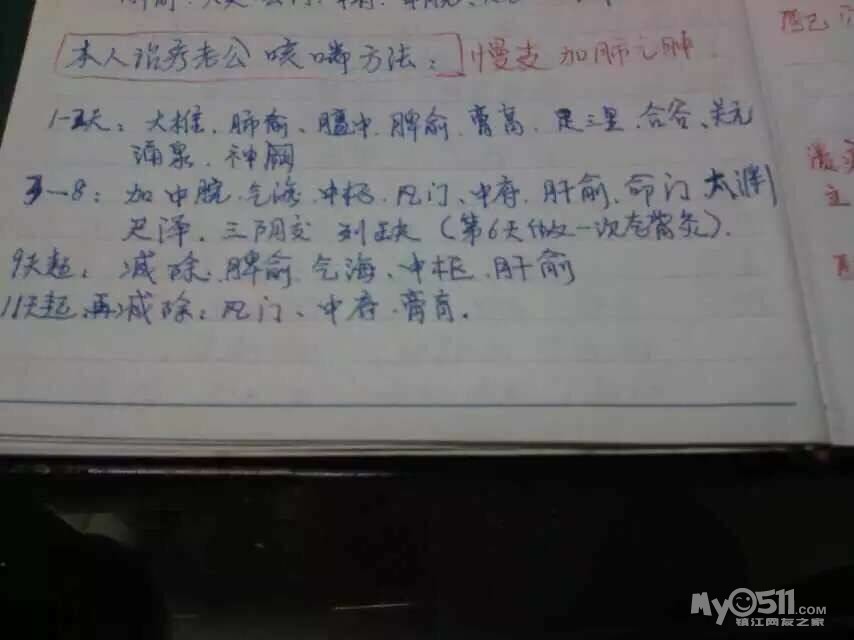 本人治疗老公咳喘方法：慢支加肺气肿
1-2天：大椎、肺俞、膻中、脾俞、膏肓、足三里、合谷、关元
涌泉、神阙
3—8：加中脘、气海、中极、风门、中府、肝俞、命门 太渊
尺泽、三阴交 列缺（第6天做一次龙骨灸）.
9天起：减除、脾俞、气海、中极、肝俞
11天起、再减除：风门、中府、膏肓.
My0511.COM
镇江网友之家